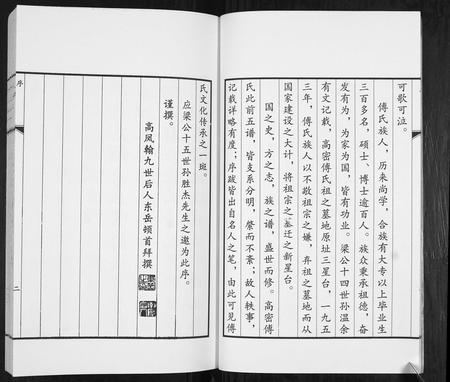 可歌可泣。
傅氏族人，历来尚学，合族有大专以上毕业生
三百多名，硕士、博士逾百人。族众秉承祖德，奋
发有为，为家为国，皆有功业。梁公十四世孙温余
有文记载，高密傅氏祖之墓地原址三星台，一九五
三年，傅氏族人以不敬祖宗之嫌，弃祖之墓地而从
国家建设之大计，将祖宗之墓迁之新星台。
国之史，方之志，族之谱，盛世而修。高密傅
氏此前五谱，皆支系分明，縈而不紊；故人轶事，
记载详略有度；序跋皆出自名人之笔，由此可见傅
氏文化传承之一斑。
应梁公十五世孙胜杰先生之邀为此序。
谨撰。
高凤翰九世后人东岳顿首拜撰
序
二